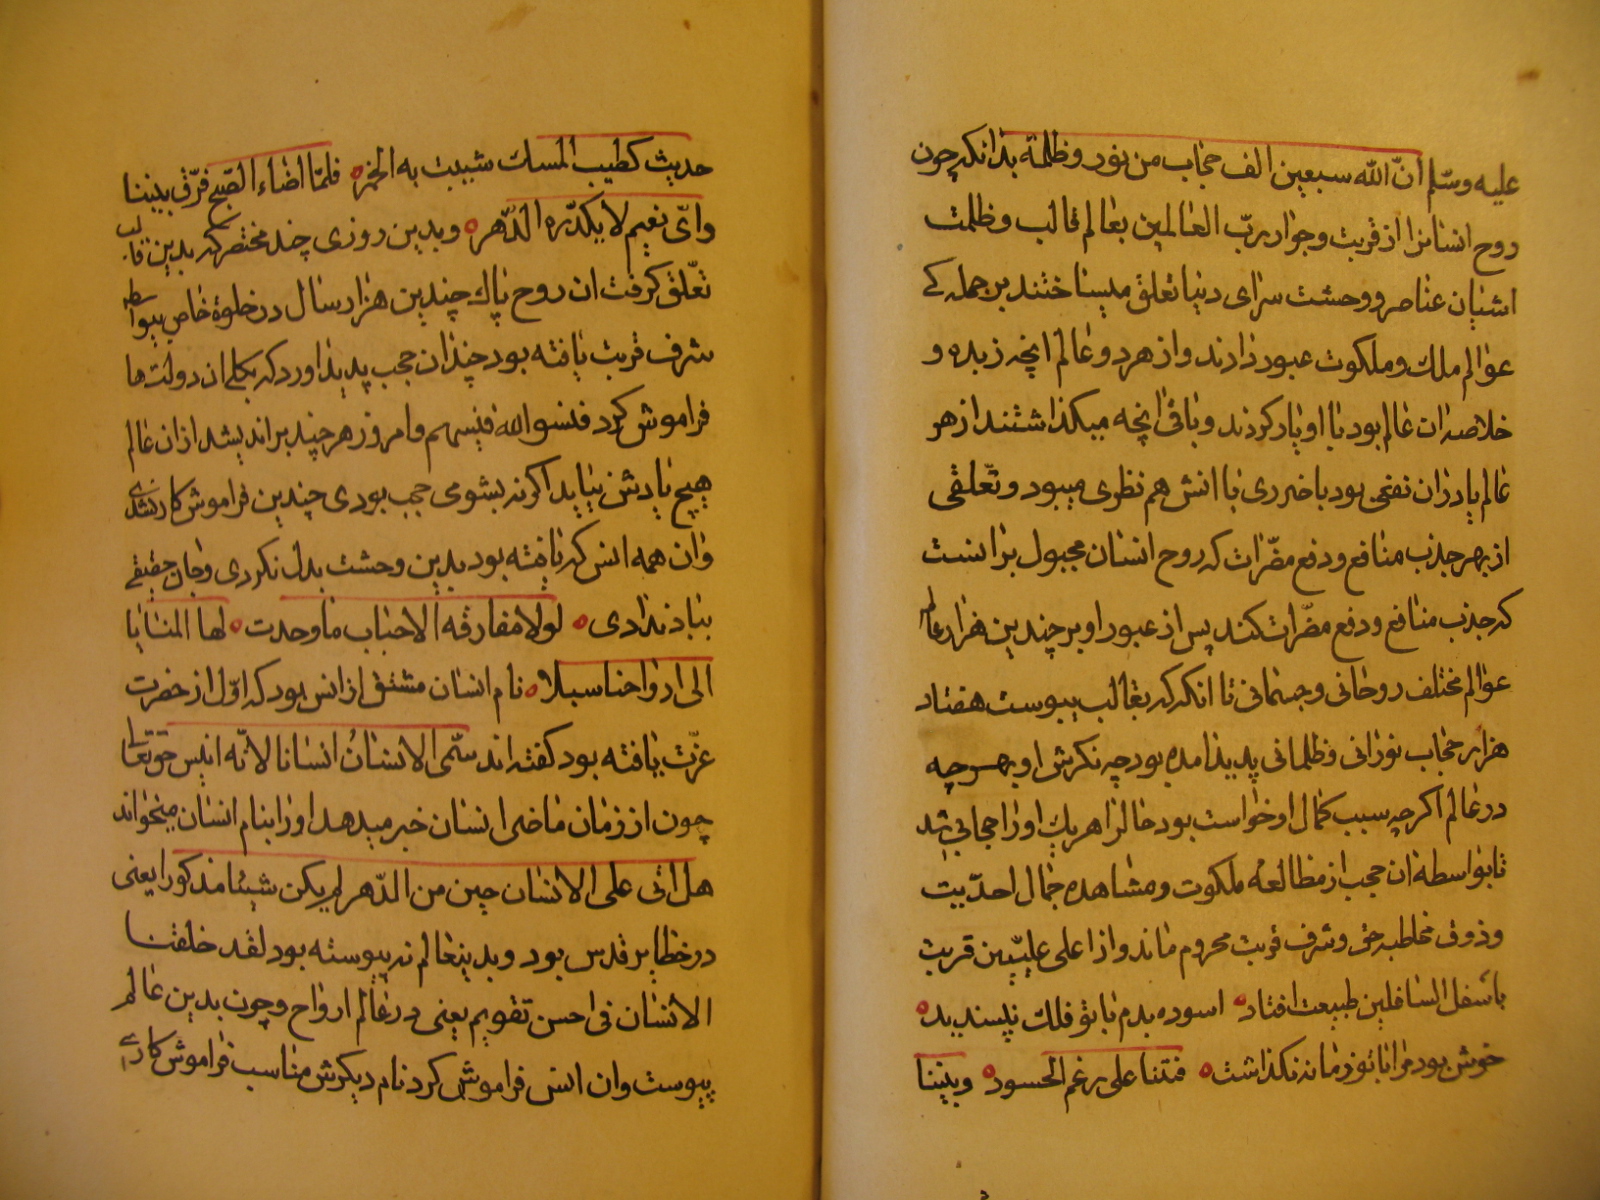 علیه وسلم انّ الله سبعین الف حجاب من نور وظلمة بدانکه چون
روح انسانرا از قربت وجوار ربّ العالمین بعالم قالب وظلمت
اشیان عناصر ووحشت سرای دنیا تعلق میساختند بر جمله کے
عوالم ملك وملکوت عبور دادند واز هر دو عالم انچه زبده و
خلاصه ان عالم بود با او یار کردند وباقی انچه میکذاشتند از هر
عالم یا دران نفعی بود یا ضرری با انش هم نظری میبود وتعلّقی
از بهر جذب منافع ودفع مضّرات که روح انسان مجبول بر انست
که جذب منافع ودفع مضّرات کند پس از عبور او بر چندین هزار عالم
عوالم مختلف روحانی وجسمانی تا انکه که بقالب پیوست هفتاد
هزار حجاب نورانی وظلمانی پدید امده بود چه نکرش او بهر چه
در عالم اکرچه سبب کمال او خواست بود حالرا هر یك اورا حجابی شد
تا بواسطه ان حجب از مطالعهٔ ملکوت ومشاهده جمال احدّیت
وذوق مخاطبه حق وشرف قربت محروم ماند واز اعلی علیّین قربت
باسفل السافلین طبیعت افتاد اسوده بدم با تو فلك نپسندید
خوش بود مرا با تو زمانه نکذاشت فبتنا علی رغم الحسود وبیننا
حدیث کطیب المسك شیبت به الخمر فلمّا اضاء الصّبح فرّق بیننا
وایّ نعیم لا یکدّره الدّهر وبدین روزی چند مختصر که بدین قالب
تعلّق کرفت ان روح پاك چندین هزار سال در خلوة خاص بیواسطه
شرف قربت یافته بود چندان حجب پدید اورد که بکلی ان دولتها
فراموش کرد فنسوا الله فنسیهم وامروز هر چند بر اندیشد ازان عالم
هیچ یادش نیاید اکر نه بشومی حجب بودی چندین فراموش کار نشدی
وان همه انس که یافته بود بدین وحشت بدل نکردی وجان حقیقے
بباد ندادی لولا مفارقة الاحباب ما وجدت لها المنایا
الی ارواحنا سبلا نام انسان مشتق از انس بود که اوّل از حضرت
عزّت یافته بود کفته اند سمّی الانسانُ انسانا لانّه انیس حق تعالی
چون از زمان ماضی انسان خبر میدهد اورا بنام انسان میخواند
هل اتی علی الانسان حین من الدّهر لم یکن شیئا مذکورا یعنی
در خطایر قدس بود وبدینعالم نه پیوسته بود لقد خلقنا
الانسان فی احسن تقویم یعنی در عالم ارواح وچون بدین عالم
پیوست وان انس فراموش کرد نام دیکرش مناسب فراموش کاری